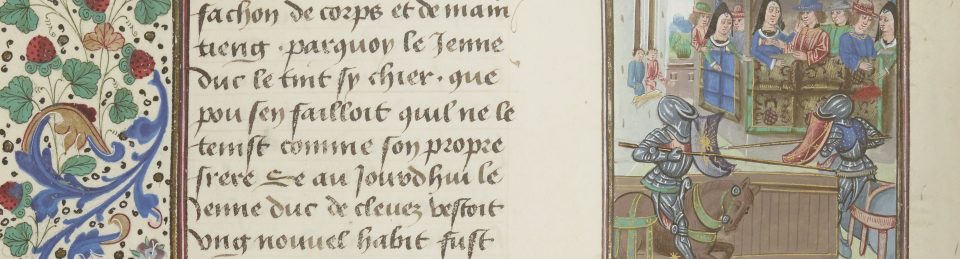 fachon de corps et de main
tieng · parquoy le Jenne
duc le tint sy chier · que
pou sen failloit quil ne le
tenist comme son propre
frere Se au Jourdhui le
Jenne duc de cleuez vestoit
vng nouuel habit fust